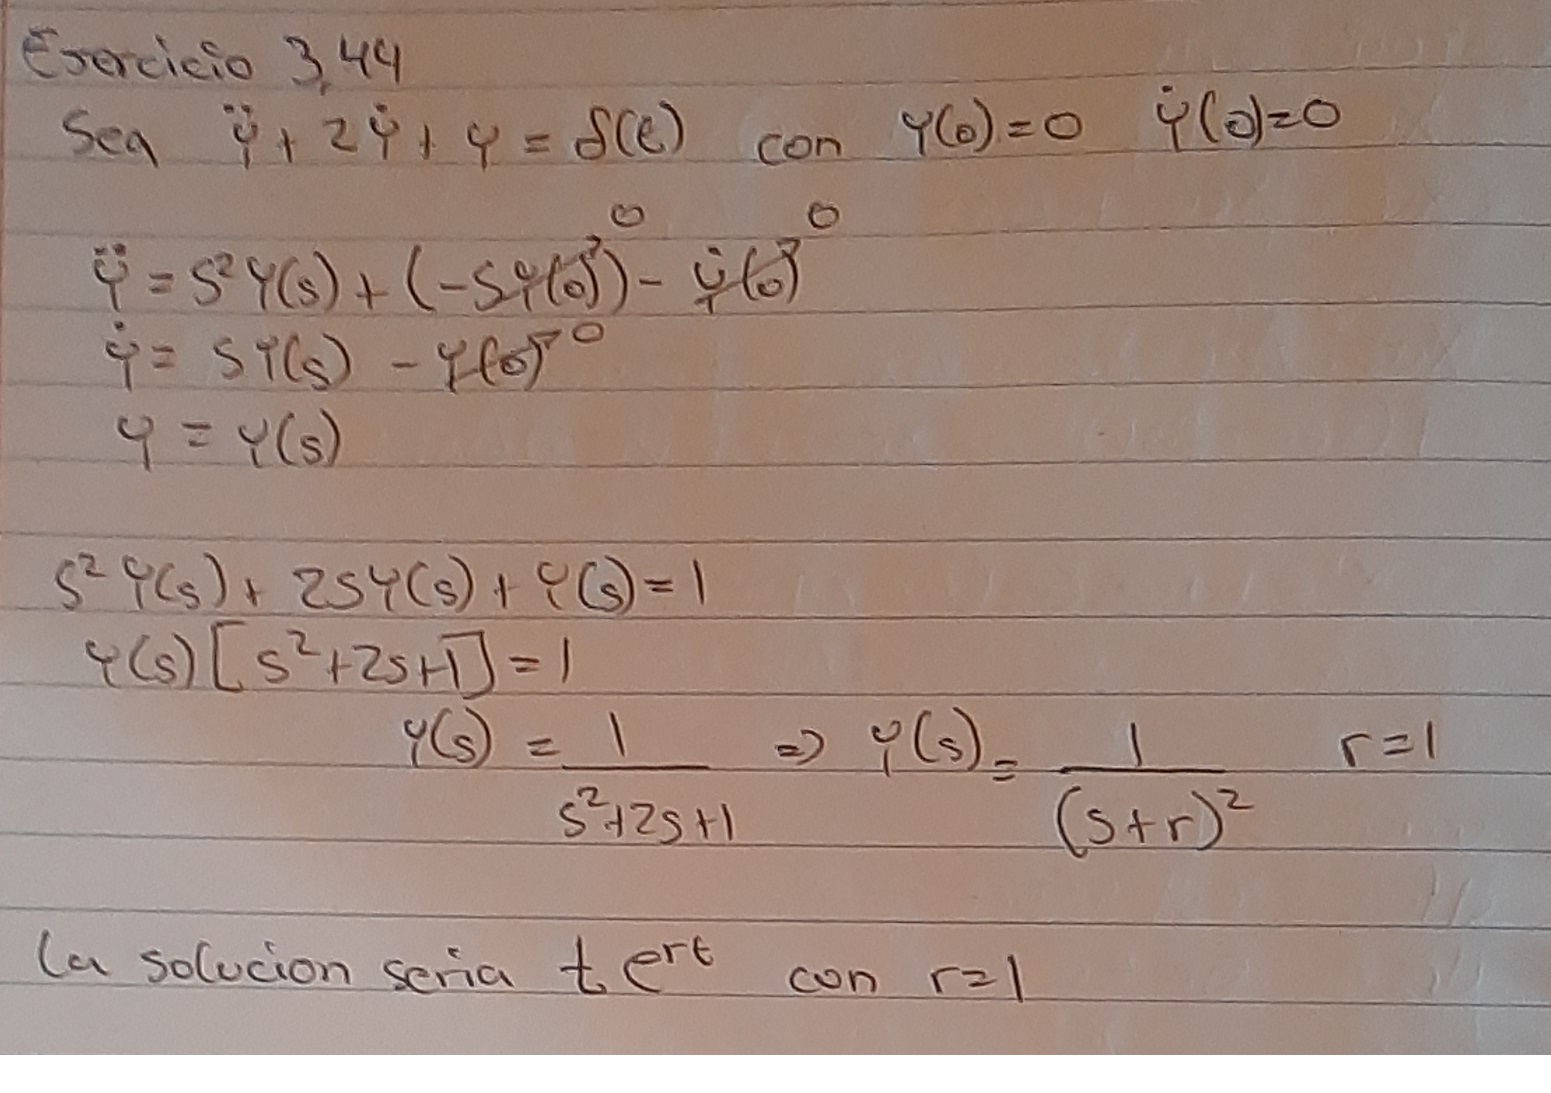 Ejercicio 3,44
Sea ÿ + 2ẏ + y = δ(t) con y(0)=0 ẏ(0)=0
0 0
ÿ = S²Y(s) + (-Sy(0)) - ẏ(0)
ẏ = SY(s) - y(0) 0
y = Y(s)
S²Y(s) + 2SY(s) + Y(s) = 1
Y(s)[S²+2S+1] = 1
Y(s) = 1/(S²+2S+1) => Y(s) = 1/(S+r)² r=1
la solucion seria t e^rt con r=1